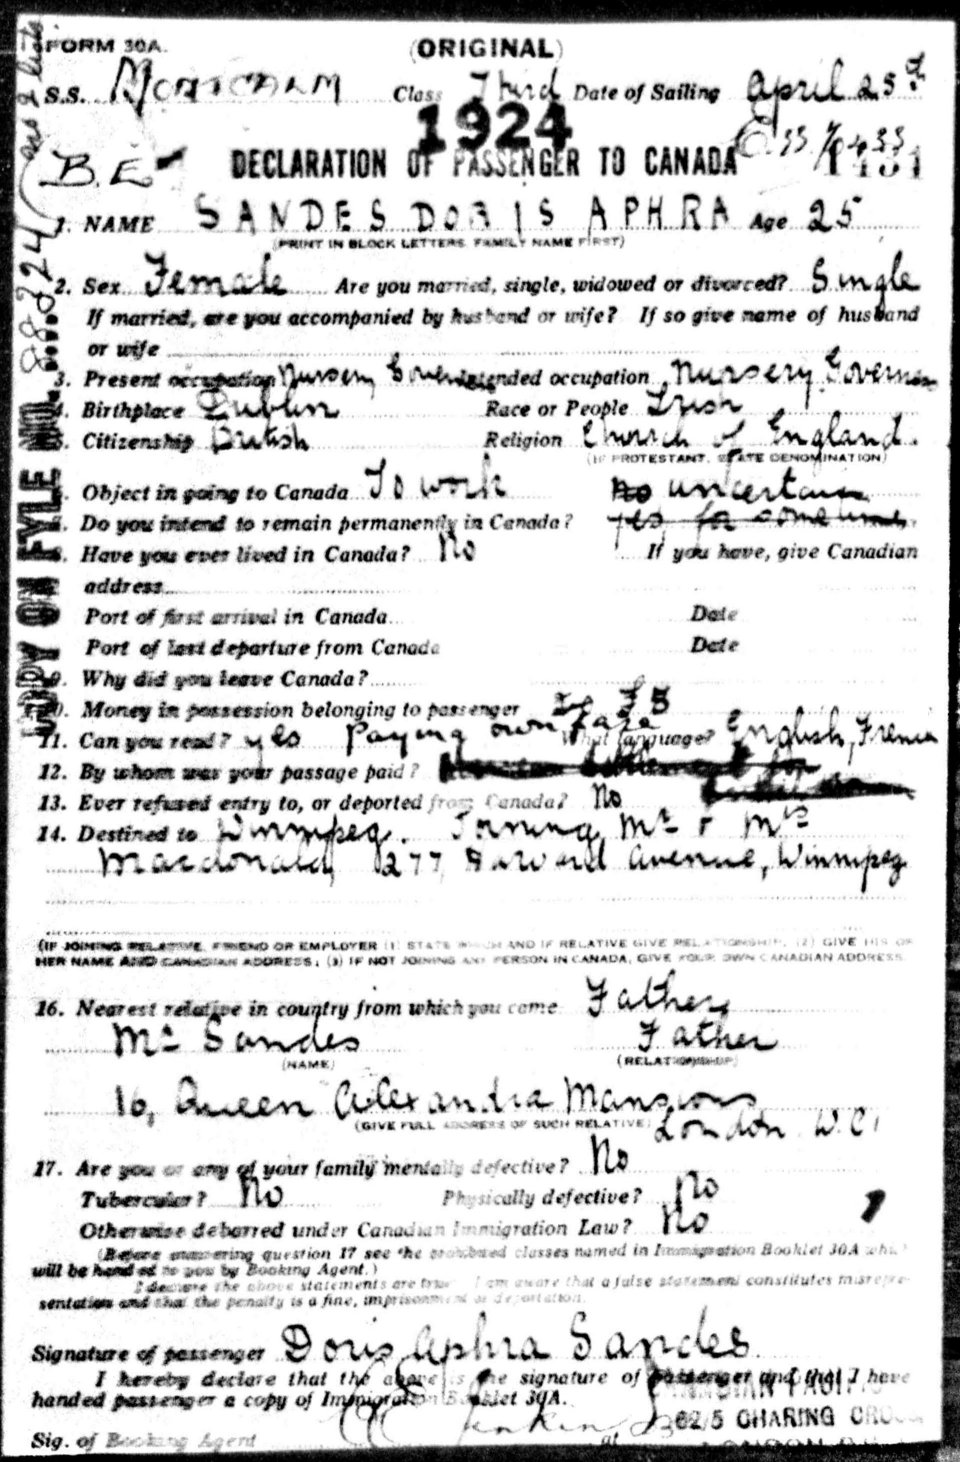 FORM 30A.
(ORIGINAL)
S.S. Montcalm Class Third Date of Sailing April 25th
1924
B.E
DECLARATION OF PASSENGER TO CANADA
1. NAME SANDES DORIS APHRA Age 25
(PRINT IN BLOCK LETTERS, FAMILY NAME FIRST)
2. Sex Female Are you married, single, widowed or divorced? Single
If married, are you accompanied by husband or wife? If so give name of husband
or wife
3. Present occupation Nursery Intended occupation Nursery Governess
4. Birthplace Dublin Race or People Irish
5. Citizenship British Religion Church of England.
(IF PROTESTANT, STATE DENOMINATION)
Object in going to Canada To work no uncertain
Do you intend to remain permanently in Canada? yes for some time
8. Have you ever lived in Canada? No If you have, give Canadian
address
Port of first arrival in Canada Date
Port of last departure from Canada Date
9. Why did you leave Canada?
Money in possession belonging to passenger £5
11. Can you read? yes What language? English, French
Paying own fare
12. By whom was your passage paid?
13. Ever refused entry to, or deported from Canada? No
14. Destined to Winnipeg. Joining Mr & Mrs
Macdonald, 277 Harvard Avenue, Winnipeg
(IF JOINING RELATIVE, FRIEND OR EMPLOYER (1) STATE WHICH AND IF RELATIVE GIVE RELATIONSHIP, (2) GIVE HIS OR
HER NAME AND CANADIAN ADDRESS; (3) IF NOT JOINING ANY PERSON IN CANADA, GIVE YOUR OWN CANADIAN ADDRESS.
16. Nearest relative in country from which you came Father
Mr Sandes Father
(NAME) (RELATIONSHIP)
16, Queen Alexandra Mansions
(GIVE FULL ADDRESS OF SUCH RELATIVE) London W.C1
17. Are you or any of your family mentally defective? No
Tubercular? No Physically defective? No
Otherwise debarred under Canadian Immigration Law? No
(Before answering question 17 see the prohibited classes named in Immigration Booklet 30A which
will be handed to you by Booking Agent.)
I declare the above statements are true. I am aware that a false statement constitutes misrepre-
sentation and that the penalty is a fine, imprisonment or deportation.
Signature of passenger Doris Aphra Sandes
I hereby declare that the above is the signature of passenger and that I have
handed passenger a copy of Immigration Booklet 30A.
CANADIAN PACIFIC
62/5 CHARING CROSS
Sig. of Booking Agent
COPY ON FYLE NO.